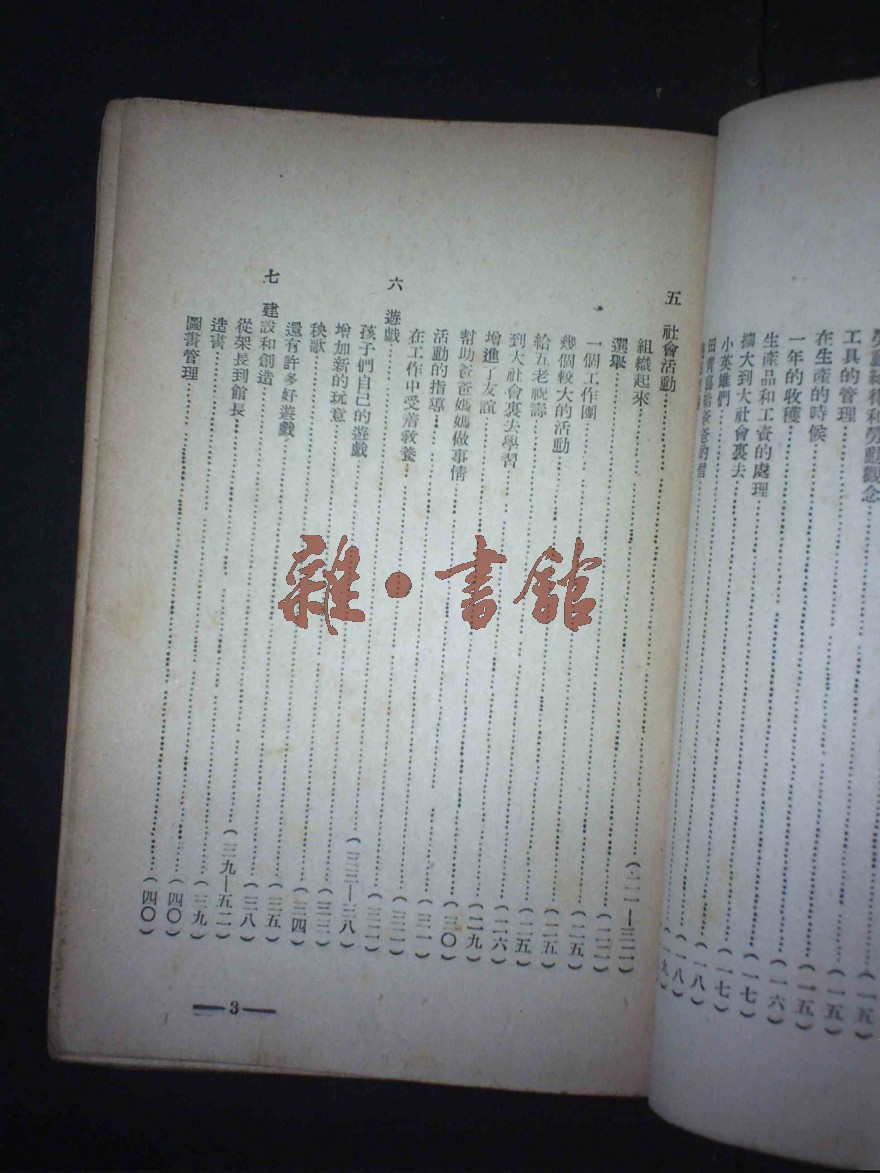 勞動紀律和勞動觀念……(一五)
工具的管理……(一五)
在生產的時候……(一五)
一年的收穫……(一六)
生產品和工資的處理……(一七)
擴大到大社會裏去……(一七)
小英雄們……(一八)
田 寫給爸爸的信……(一八)
……(一九)
五 社會活動……(二一—三二)
組織起來……(二二)
選舉……(二五)
一個工作團……(二五)
幾個較大的活動……(二五)
給五老祝壽……(二六)
到大社會裏去學習……(二九)
增進了友誼……(三〇)
幫助爸爸媽媽做事情……(三一)
活動的指導……(三二)
在工作中受着教養……(三二)
六 遊戲……(三三—三八)
孩子們自己的遊戲……(三三)
增加新的玩意……(三四)
秧歌……(三五)
還有許多好遊戲……(三八)
七 建設和創造……(三九—五二)
從架長到館長……(三九)
造書……(四〇)
圖書管理……(四〇)
—3—
雜·書館